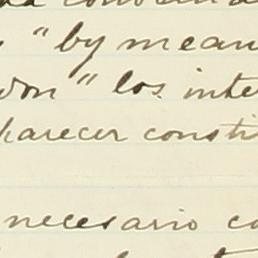 "by mean
don" los inte
parecer consti
necesario co